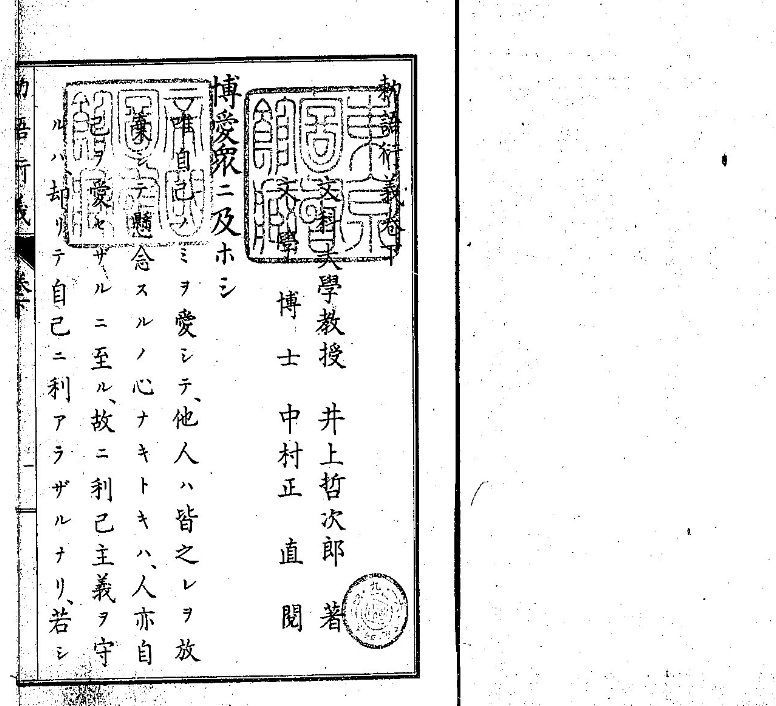 勅語衍義卷下
文科大學教授 井上哲次郎 著
文學博士 中村正直 閱
博愛衆ニ及ホシ
唯自己ノミヲ愛シテ、他人ハ皆之レヲ放
棄シテ懸念スルノ心ナキトキハ、人亦自
己ヲ愛セザルニ至ル、故ニ利己主義ヲ守
ルハ、却リテ自己ニ利アラザルナリ、若シ
勅語衍義 卷下
一
東京圖書館藏